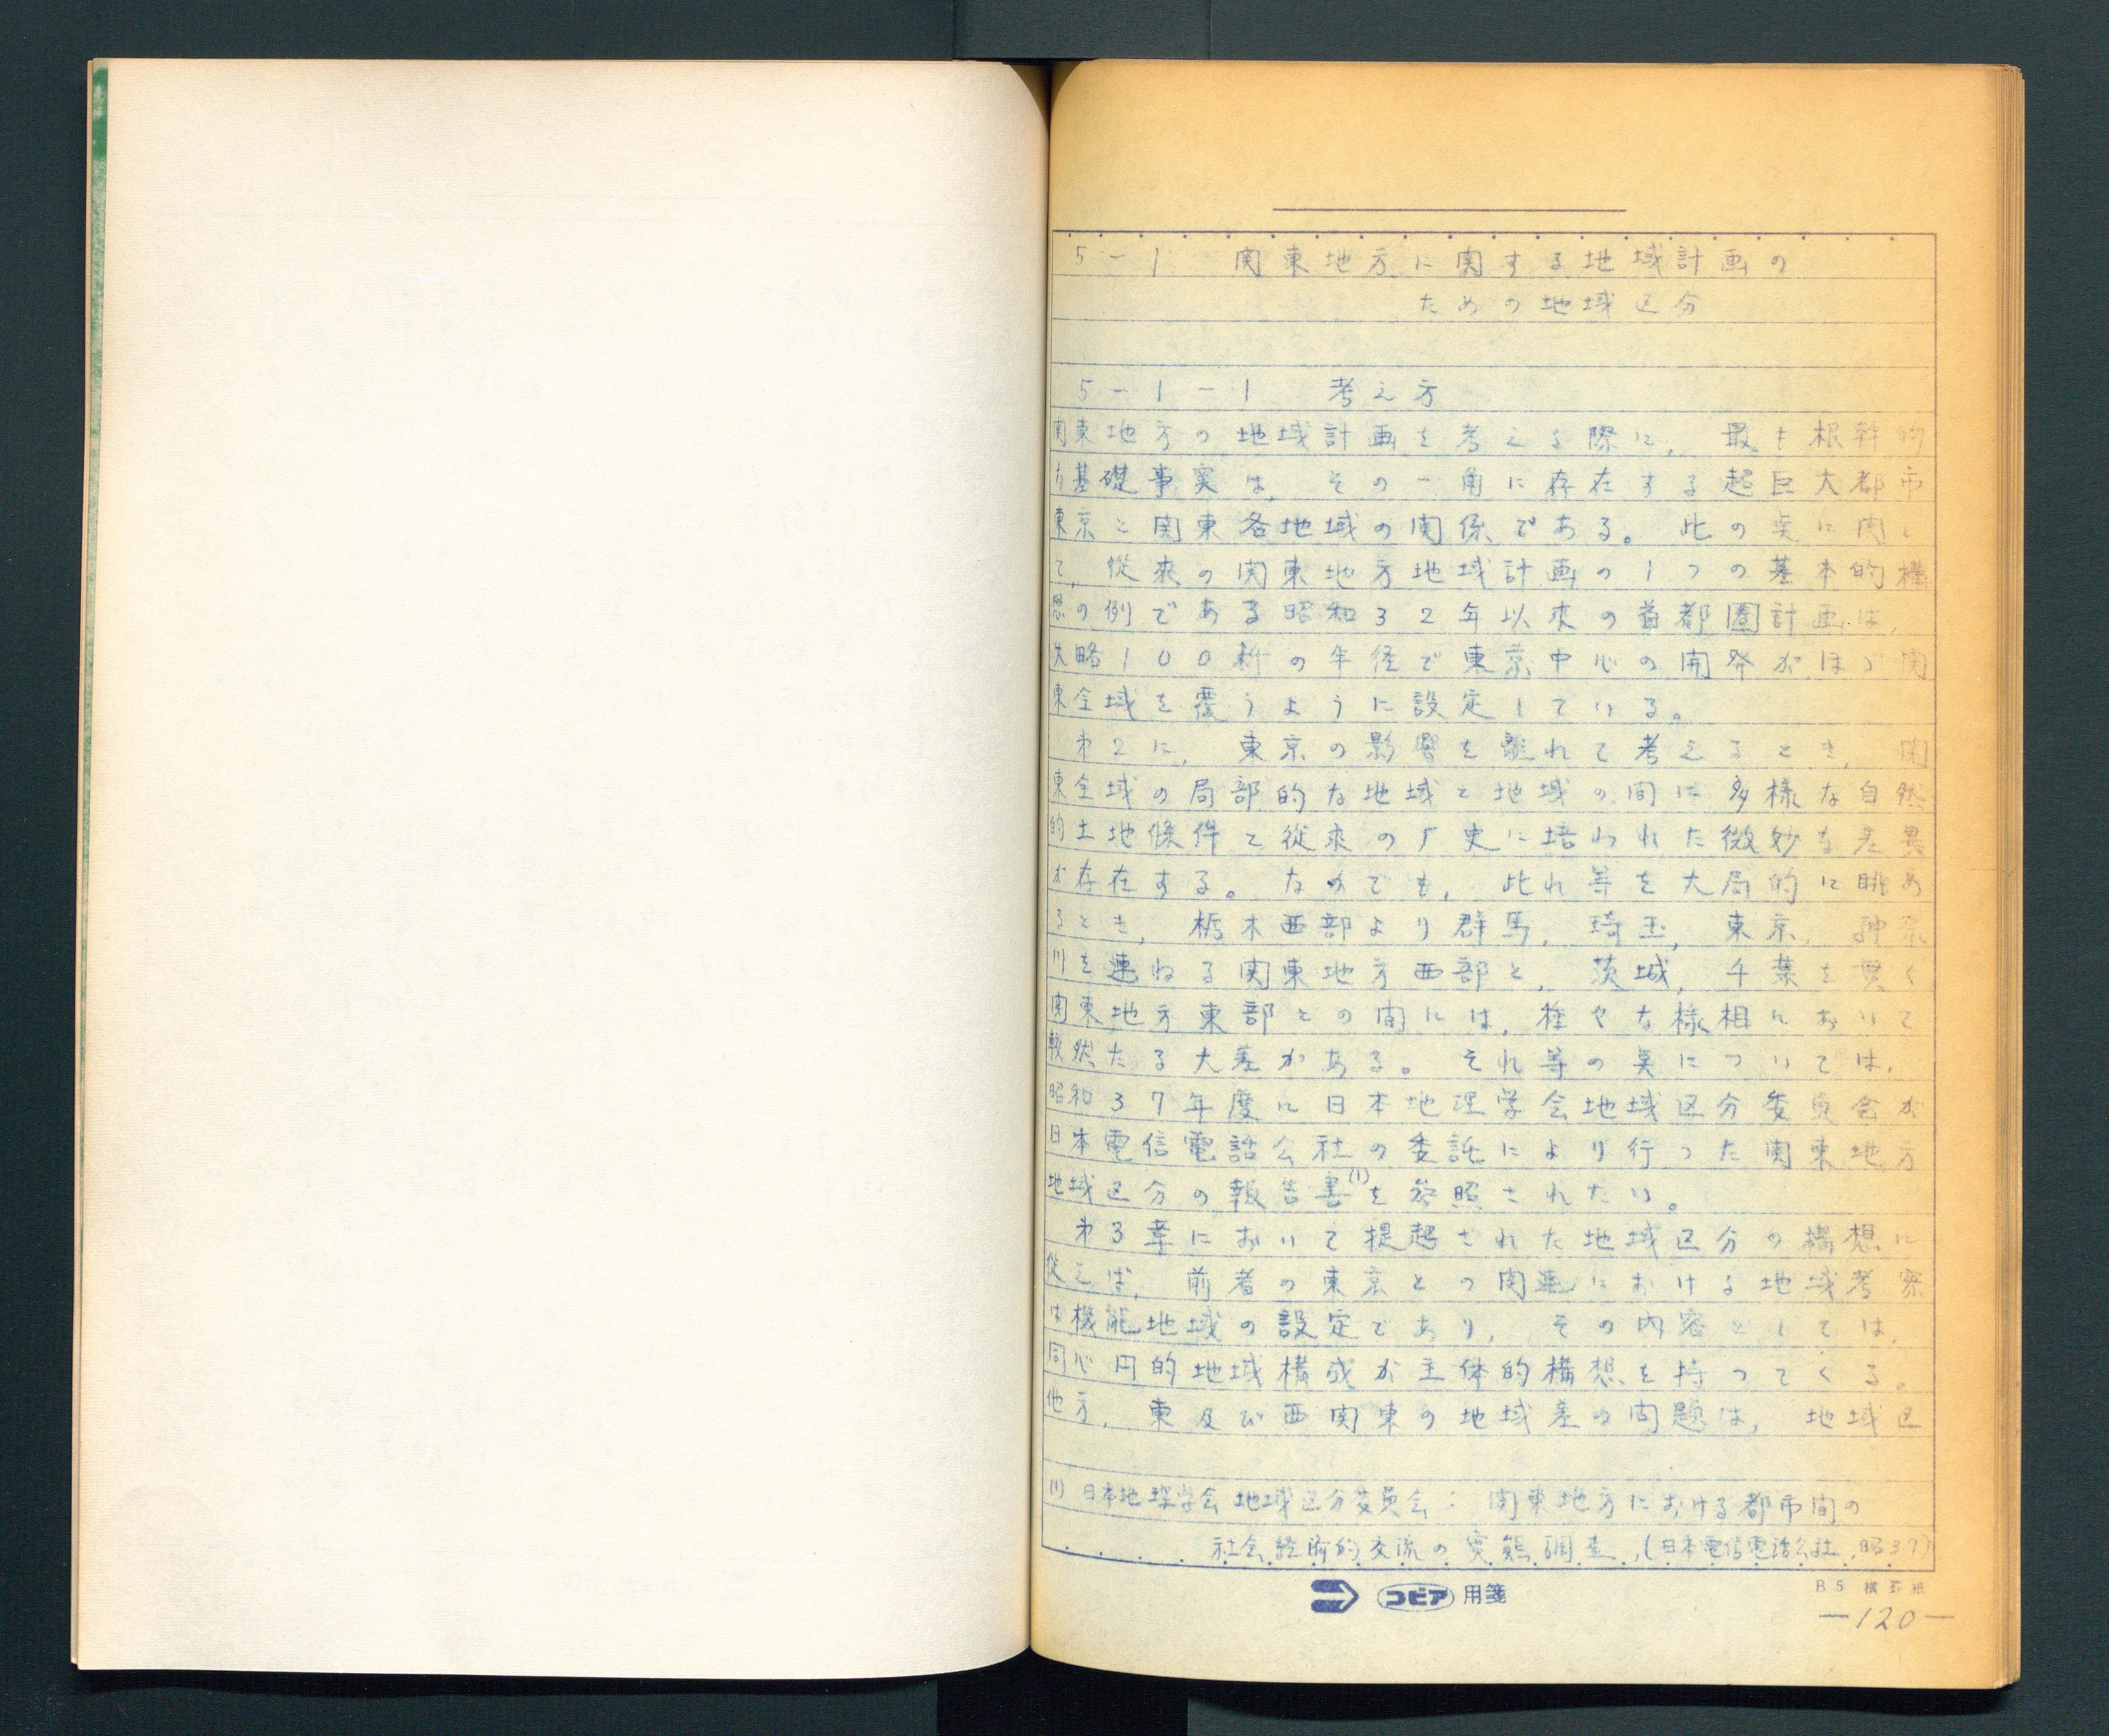 5-1 関東地方に関する地域計画の
ための地域区分
5-1-1 考え方
関東地方の地域計画を考える際に，最も根幹的
な基礎事実は，その一角に存在する超巨大都市
東京と関東各地域の関係である。此の点に関し
て，従来の関東地方地域計画の1つの基本的構
想の例である昭和32年以来の首都圏計画は，
大略100粁の半径で東京中心の開発がほゞ関
東全域を覆うように設定している。
才2に，東京の影響を離れて考えるとき，関
東全域の局部的な地域と地域の間に多様な自然
的土地條件と従来の厂史に培われた微妙な差異
が存在する。なかでも，此れ等を大局的に眺め
るとき，栃木西部より群馬，埼玉，東京，神奈
川を連ねる関東地方西部と，茨城，千葉を貫く
関東地方東部との間には，種々な様相において
較然たる大差がある。それ等の点については，
昭和37年度に日本地理学会地域区分委員会が
日本電信電話公社の委託により行つた関東地方
地域区分の報告書(1)を参照されたい。
才3章において提起された地域区分の構想に
従えば，前者の東京との関連における地域考察
は機能地域の設定であり，その内容としては，
同心円的地域構成が主体的構想を持つてくる。
他方，東及び西関東の地域差の問題は，地域区
(1) 日本地理学会地域区分委員会：関東地方における都市間の
社会経済的交流の実態調査，(日本電信電話公社，昭37)
コピア 用箋
B5 横罫紙
—120—